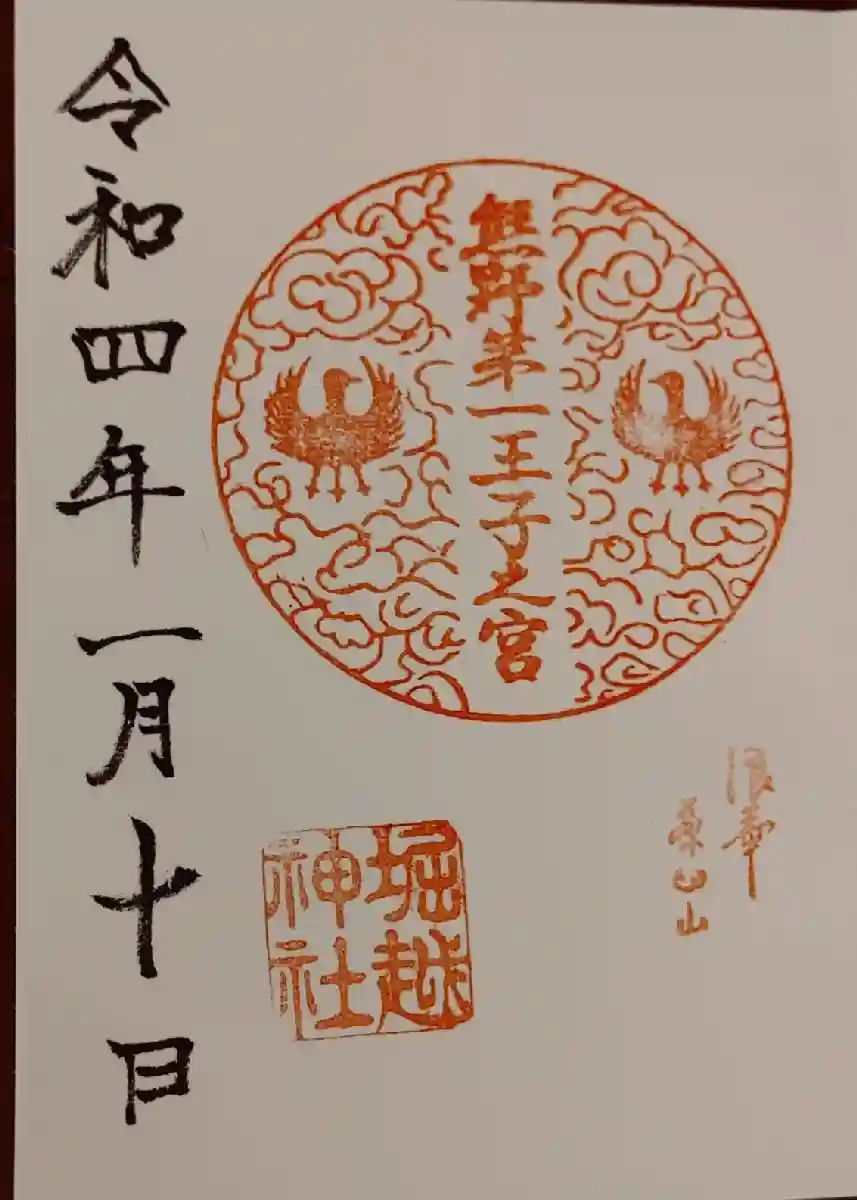 浪華
茶臼山
熊野第一王子之宮
堀越
神社
令和四年一月十日